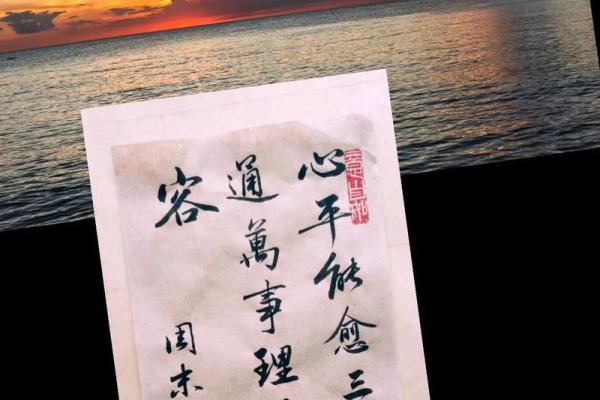 心平能愈三
通萬事理
容
周末